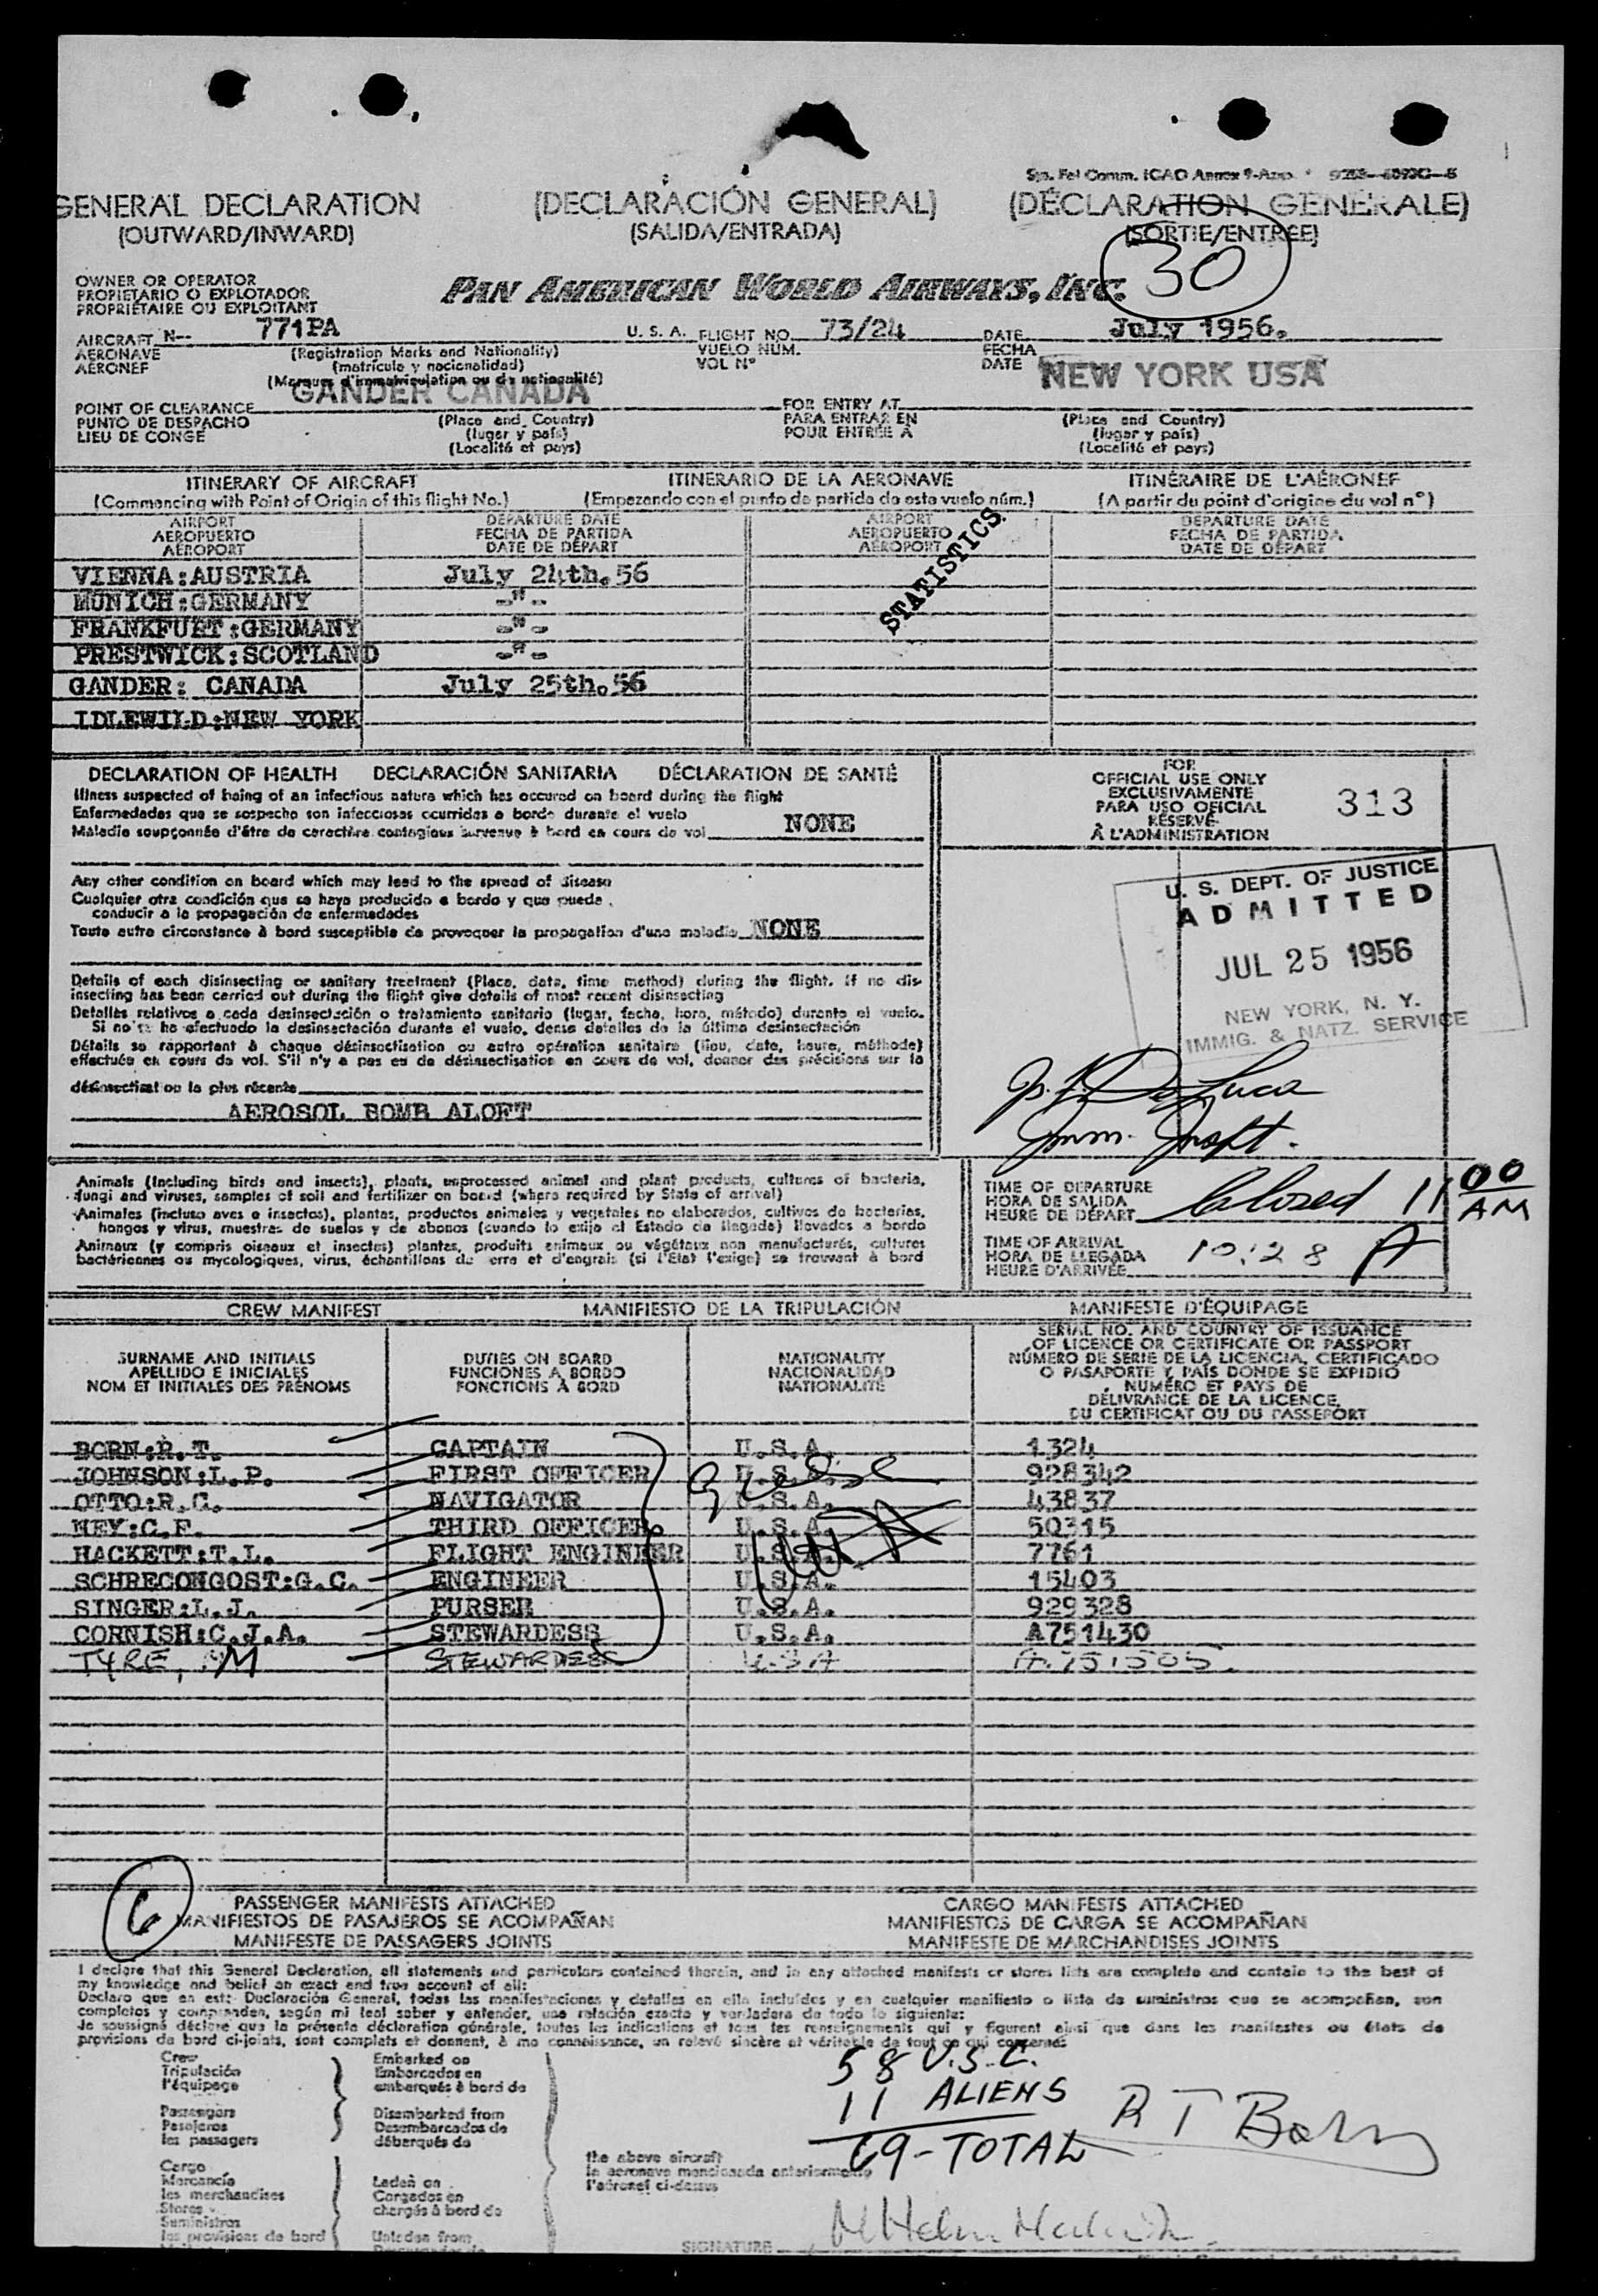 GENERAL DECLARATION (DECLARACIÓN GENERAL) (DÉCLARATION GENERALE)
(OUTWARD/INWARD) (SALIDA/ENTRADA) (SORTIE/ENTREE)
30
OWNER OR OPERATOR
PROPIETARIO O EXPLOTADOR
PROPRIÉTAIRE OU EXPLOITANT
PAN AMERICAN WORLD AIRWAYS, INC.
AIRCRAFT N-- 771PA U. S. A. FLIGHT NO. 73/24 DATE July 1956.
AERONAVE (Registration Marks and Nationality) VUELO NUM. FECHA
AÉRONEF (matrícula y nacionalidad) VOL N° DATE
(Marques d'immatriculation ou de nationalité)
GANDER CANADA NEW YORK USA
POINT OF CLEARANCE FOR ENTRY AT
PUNTO DE DESPACHO (Place and Country) PARA ENTRAR EN (Place and Country)
LIEU DE CONGE (lugar y país) POUR ENTRÉE À (lugar y país)
(Localité et pays) (Localité et pays)
ITINERARY OF AIRCRAFT ITINERARIO DE LA AERONAVE ITINÉRAIRE DE L'AÉRONEF
(Commencing with Point of Origin of this flight No.) (Empezando con el punto de partida de este vuelo núm.) (A partir du point d'origine du vol n°)
AIRPORT DEPARTURE DATE AIRPORT DEPARTURE DATE
AEROPUERTO FECHA DE PARTIDA AEROPUERTO FECHA DE PARTIDA
AÉROPORT DATE DE DÉPART AÉROPORT DATE DE DÉPART
STATISTICS
VIENNA:AUSTRIA July 24th.56
MUNICH:GERMANY -"-
FRANKFURT:GERMANY -"-
PRESTWICK:SCOTLAND -"-
GANDER: CANADA July 25th.56
IDLEWILD:NEW YORK
DECLARATION OF HEALTH DECLARACIÓN SANITARIA DÉCLARATION DE SANTÉ
Illness suspected of being of an infectious nature which has occured on board during the flight
Enfermedades que se sospecha son infecciosas ocurridas a bordo durante el vuelo
Maladie soupçonnée d'être de caractère contagieux survenue à bord en cours de vol NONE
Any other condition on board which may lead to the spread of disease
Cualquier otra condición que se haya producido a bordo y que pueda
conducir a la propagación de enfermedades
Toute autre circonstance à bord susceptible de provoquer la propagation d'une maladie NONE
Details of each disinsecting or sanitary treatment (Place, date, time method) during the flight. if no dis-
insecting has been carried out during the flight give details of most recent disinsecting
Detalles relativos a cada desinsectación o tratamiento sanitario (lugar, fecha, hora, método) durante el vuelo.
Si no se ha efectuado la desinsectación durante el vuelo, dense detalles de la última desinsectación
Détails se rapportant à chaque désinsectisation ou autre opération sanitaire (lieu, date, heure, méthode)
effectuée en cours de vol. S'il n'y a pas eu de désinsectisation en cours de vol, donner des précisions sur la
désinsectisation la plus récente
AEROSOL BOMB ALOFT
FOR
OFFICIAL USE ONLY
EXCLUSIVAMENTE
PARA USO OFICIAL
RÉSERVÉ
À L'ADMINISTRATION
313
U. S. DEPT. OF JUSTICE
ADMITTED
JUL 25 1956
NEW YORK, N. Y.
IMMIG. & NATZ. SERVICE
De Luca
Imm. Inspt.
Animals (Including birds and insects), plants, unprocessed animal and plant products, cultures of bacteria,
fungi and viruses, samples of soil and fertilizer on board (where required by State of arrival)
Animales (incluso aves e insectos), plantas, productos animales y vegetales no elaborados, cultivos de bacterias,
hongos y virus, muestras de suelos y de abonos (cuando lo exija el Estado de llegada) llevados a bordo
Animaux (y compris oiseaux et insectes) plantes, produits animaux ou végétaux non manufacturés, cultures
bactériennes ou mycologiques, virus, échantillons de terre et d'engrais (si l'Etat l'exige) se trouvant à bord
TIME OF DEPARTURE
HORA DE SALIDA
HEURE DE DÉPART Closed 11 00 AM
TIME OF ARRIVAL
HORA DE LLEGADA
HEURE D'ARRIVÉE 10:28 A
CREW MANIFEST MANIFIESTO DE LA TRIPULACIÓN MANIFESTE D'ÉQUIPAGE
SURNAME AND INITIALS
APELLIDO E INICIALES
NOM ET INITIALES DES PRÉNOMS
DUTIES ON BOARD
FUNCIONES A BORDO
FONCTIONS À BORD
NATIONALITY
NACIONALIDAD
NATIONALITÉ
SERIAL NO. AND COUNTRY OF ISSUANCE
OF LICENCE OR CERTIFICATE OR PASSPORT
NÚMERO DE SERIE DE LA LICENCIA, CERTIFICADO
O PASAPORTE Y PAÍS DONDE SE EXPIDIO
NUMÉRO ET PAYS DE
DÉLIVRANCE DE LA LICENCE,
DU CERTIFICAT OU DU PASSEPORT
BORN:R.T. CAPTAIN U.S.A. 1324
JOHNSON:L.P. FIRST OFFICER U.S.A. 928342
OTTO:R.C. NAVIGATOR U.S.A. 43837
HEY:C.F. THIRD OFFICER U.S.A. 50315
HACKETT:T.L. FLIGHT ENGINEER U.S.A. 7761
SCHRECONGOST:G.C. ENGINEER U.S.A. 15403
SINGER:L.J. PURSER U.S.A. 929328
CORNISH:C.J.A. STEWARDESS U.S.A. A751430
TYRE, M STEWARDESS U.S.A
6
PASSENGER MANIFESTS ATTACHED CARGO MANIFESTS ATTACHED
MANIFIESTOS DE PASAJEROS SE ACOMPAÑAN MANIFIESTOS DE CARGA SE ACOMPAÑAN
MANIFESTE DE PASSAGERS JOINTS MANIFESTE DE MARCHANDISES JOINTS
I declare that this General Declaration, all statements and particulars contained therein, and in any attached manifests or stores lists are complete and contain to the best of
my knowledge and belief an exact and true account of all:
Declaro que en esta Declaración General, todas las manifestaciones y detalles en ella incluídos y en cualquier manifiesto o lista de suministros que se acompañan, son
completos y comprenden, según mi leal saber y entender, una relación exacta y verdadera de todo lo siguiente:
Je soussigné déclare que la présente déclaration générale, toutes les indications et tous les renseignements qui y figurent ainsi que dans les manifestes ou états de
provisions de bord ci-joints, sont complets et donnent, à ma connaissance, un relevé sincère et véritable de tout ce qui concerne:
Crew
Tripulación
l'équipage
Embarked on
Embarcados en
embarqués à bord de
Passengers
Pasajeros
les passagers
Disembarked from
Desembarcados de
débarqués de
Cargo
Mercancía
les merchandises
Stores
Suministros
les provisions de bord
Laden on
Cargados en
chargés à bord de
Unladen from
the above aircraft
la aeronave mencionada anteriormente
l'aéronef ci-dessus
58 U.S.C.
11 ALIENS
69-TOTAL
R T Born
SIGNATURE